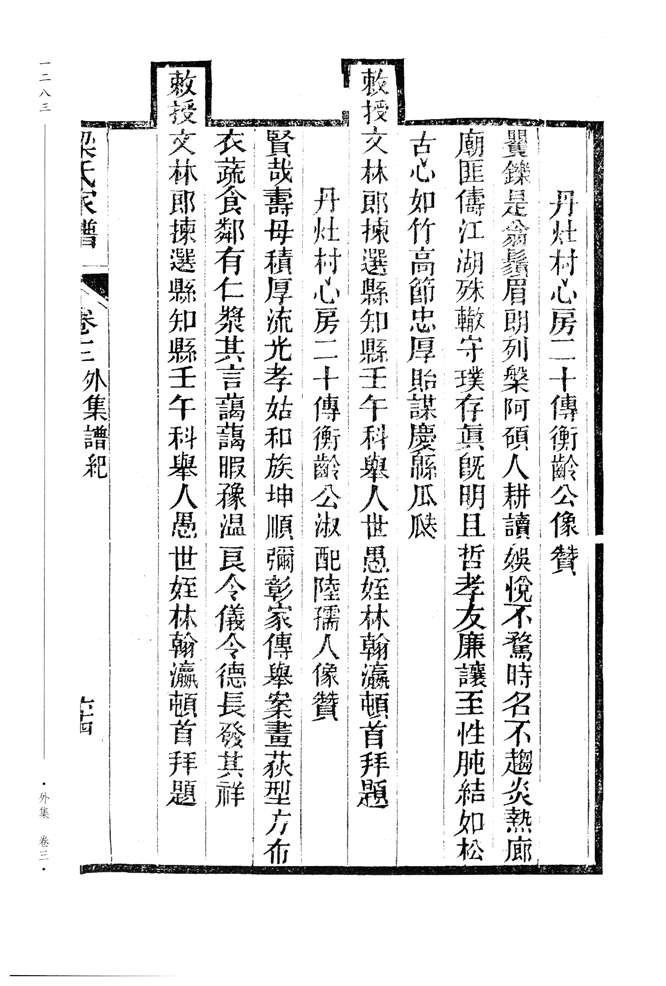 丹灶村心房二十傳衡齡公像贊
矍鑠是翁鬚眉朗列槃阿碩人耕讀娛悅不騖時名不趨炎熱廊
廟匪儔江湖殊轍守璞存眞旣明且哲孝友廉讓至性肫結如松
古心如竹高節忠厚貽謀慶緜瓜瓞
敕授文林郎揀選縣知縣壬午科舉人世愚姪林翰瀛頓首拜題
丹灶村心房二十傳衡齡公淑配陸孺人像贊
賢哉壽母積厚流光孝姑和族坤順彌彰家傳舉案畫荻型方布
衣蔬食鄰有仁漿其言藹藹暇豫溫良令儀令德長發其祥
敕授文林郎揀選縣知縣壬午科舉人愚世姪林翰瀛頓首拜題
梁氏家譜 卷三 外集譜紀 六十四
一二八三
·外集 卷三·